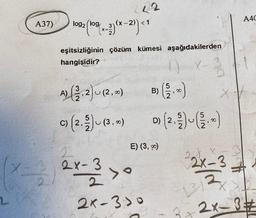 A37) log₂(log_{x-3/2}(x-2)) < 1
A4
eşitsizliğinin çözüm kümesi aşağıdakilerden
hangisidir?
A) (3/2, 2) ∪ (2, ∞) B) (5/2, ∞)
C) (2, 5/2) ∪ (3, ∞) D) (2, 5/2) ∪ (5/2, ∞)
E) (3, ∞)
2x-3/2 > 0
2x-3/2 ≠
2x-3>0
2x-3≠